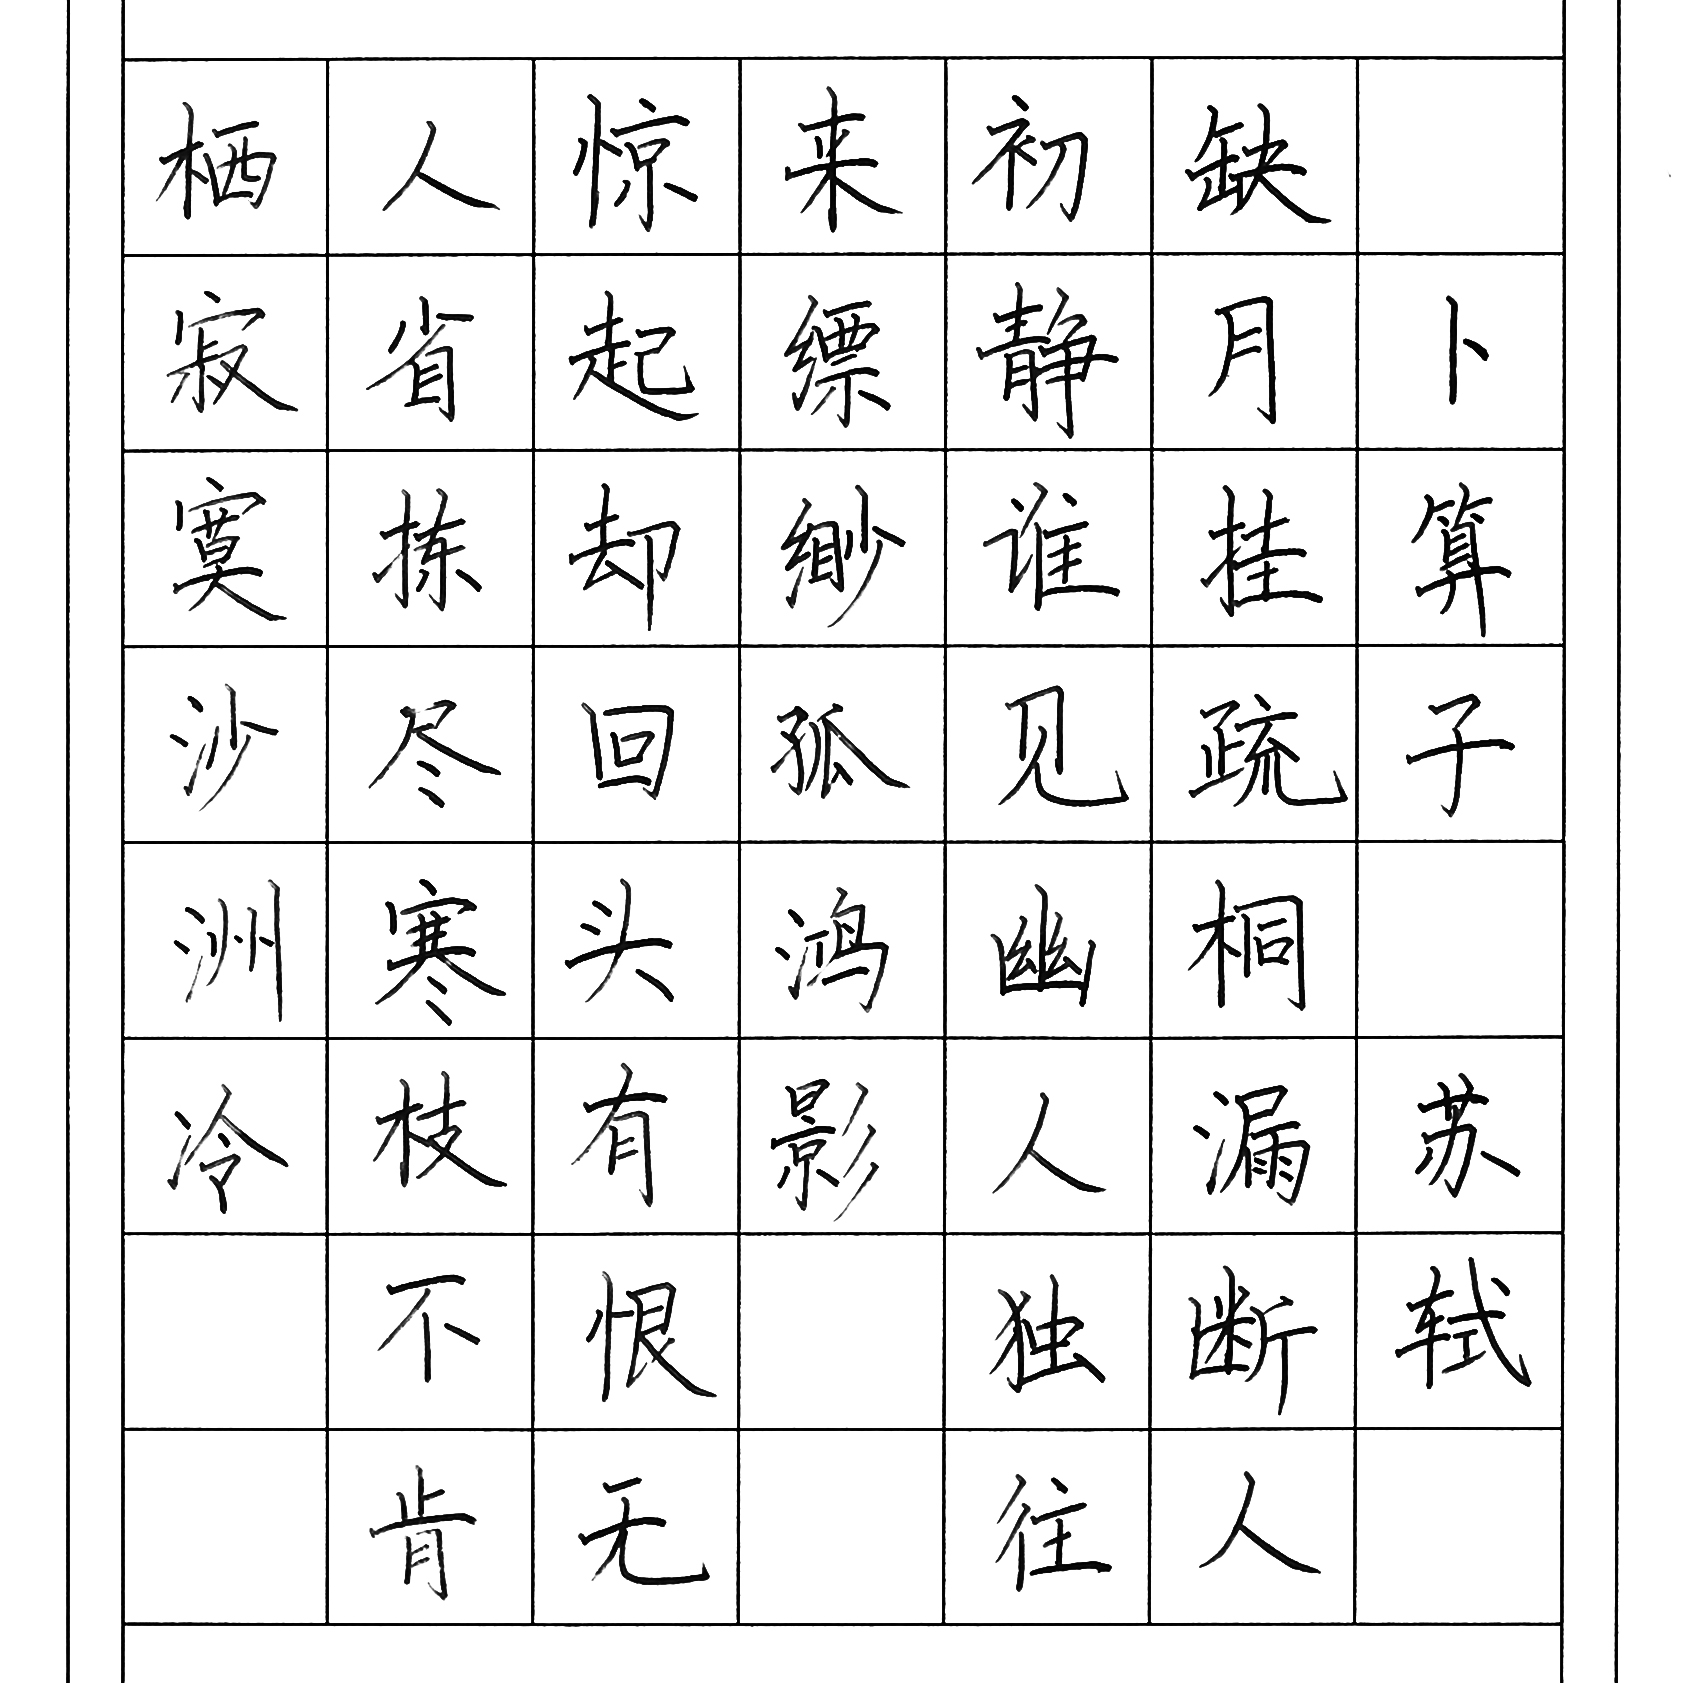 卜算子 苏轼
缺月挂疏桐漏断人
初静谁见幽人独往
来缥缈孤鸿影
惊起却回头有恨无
人省拣尽寒枝不肯
栖寂寞沙洲冷